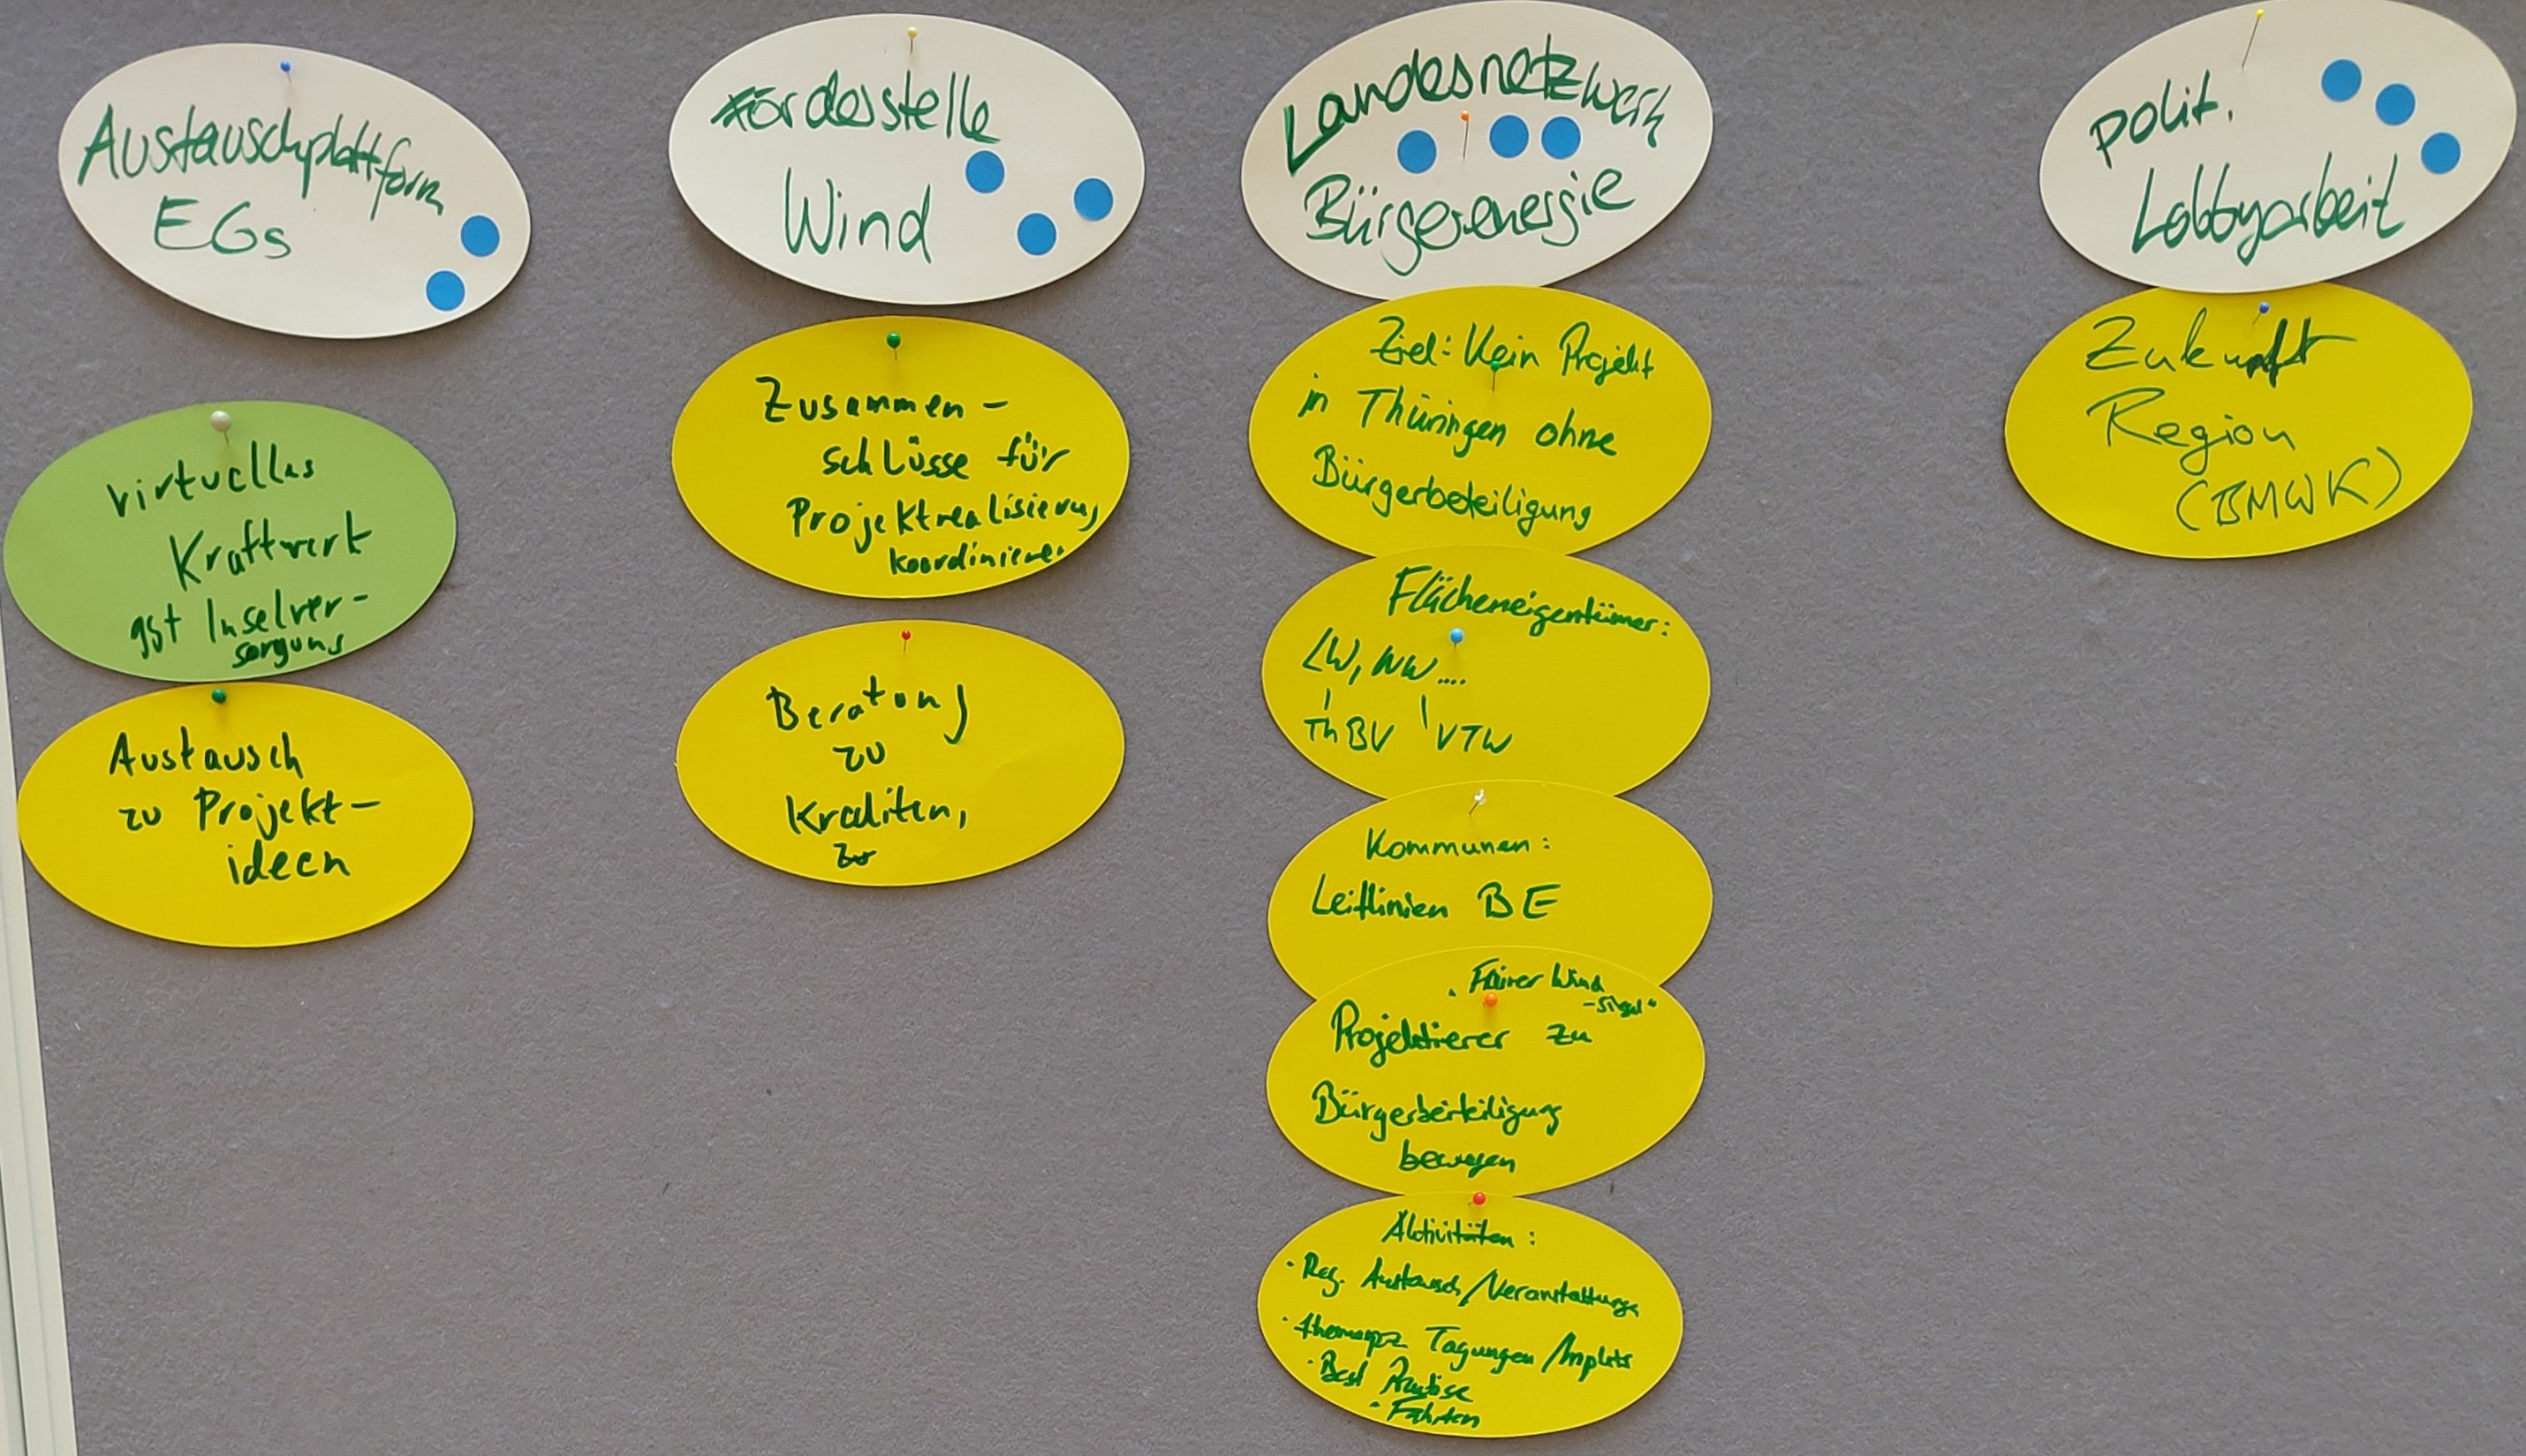 Austauschplattform
EGs
virtuelles
Kraftwerk
ggf Inselver-
sorgung
Austausch
zu Projekt-
ideen
Förderstelle
Wind
Zusammen-
schlüsse für
Projektrealisierung
koordinieren
Beratung
zu
Krediten,
Landesnetzwerk
Bürgerenergie
Ziel: Kein Projekt
in Thüringen ohne
Bürgerbeteiligung
Flächeneigentümer:
LW, WW....
ThBV VTW
Kommunen:
Leitlinien BE
"Fairer Wind
-Siegel"
Projektierer zu
Bürgerbeteiligung
bewegen
Aktivitäten:
· Reg. Austausch/Veranstaltungen
· Tagungen/Inputs
· Best Practise
· Fahrten
polit.
Lobbyarbeit
Zukunft
Region
(BMWK)